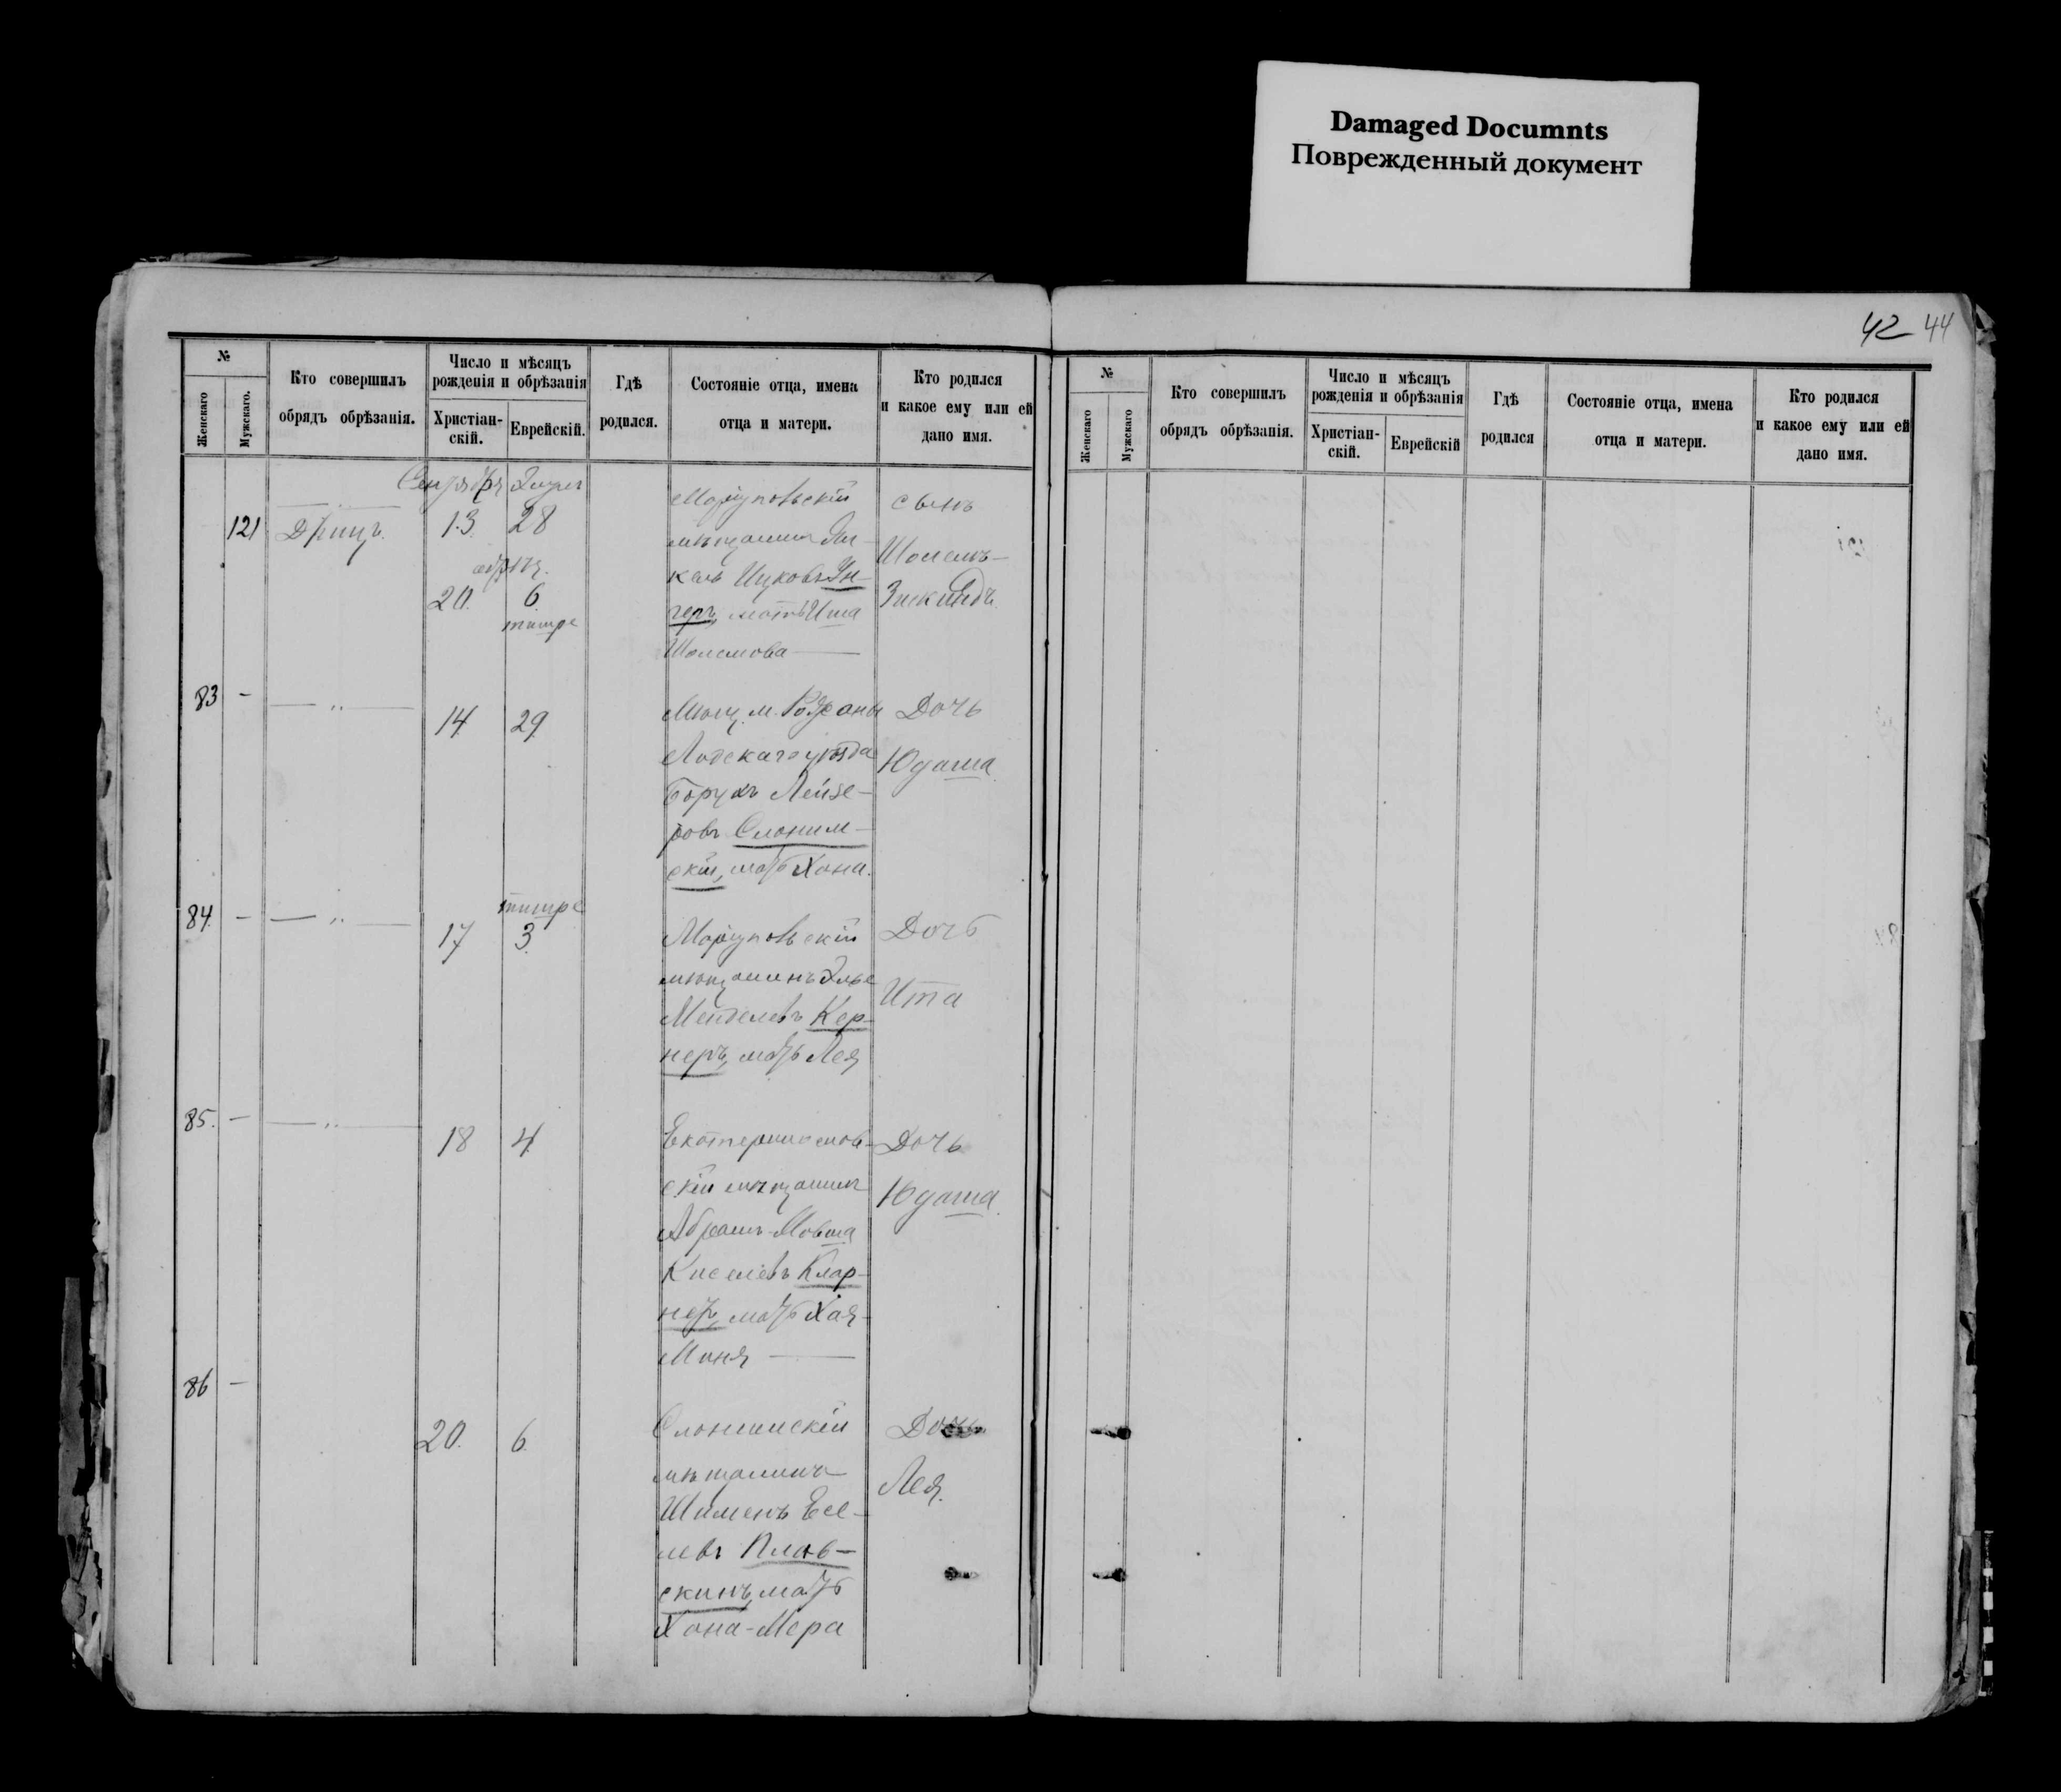 Damaged Documnts
Поврежденный документ
42 44
№
Женскаго
Мужскаго.
Кто совершилъ
обрядъ обрѣзанія.
Число и мѣсяцъ
рожденія и обрѣзанія
Христіан-
скій.
Еврейскій.
Гдѣ
родился.
Состояніе отца, имена
отца и матери.
Кто родился
и какое ему или ей
дано имя.
121
13 28
20. 6
тишре
Маріупольскій
мѣщанинъ
Ицковъ Ун-
геръ, мать
Шолемова
сынъ
Шолемъ-
Зискиндъ
83 - — „ —
14 29
Мѣщ. м.
уѣзда
Борухъ Лейзе-
ровъ Слоним-
скій, мать Хана.
Дочь
Юдаша.
84 - — „ —
тишре
17 3
Маріупольскій
мѣщанинъ
Менделевъ Кер-
неръ, мать Лея
Дочь
Ита
85. - — „ —
18 4
Екатеринослав-
скій мѣщанинъ
Абрамъ-Мовша
Киселевъ Клар-
неръ, мать Хая-
Дочь
Юдаша.
86 -
20. 6
Слонимскій
мѣщанинъ
Шименъ Есе-
левъ Плав-
скинъ, мать
Хана-Мера
Дочь
Лея.
№
Женскаго
Мужскаго
Кто совершилъ
обрядъ обрѣзанія.
Число и мѣсяцъ
рожденія и обрѣзанія
Христіан-
скій.
Еврейскій
Гдѣ
родился
Состояніе отца, имена
отца и матери.
Кто родился
и какое ему или ей
дано имя.